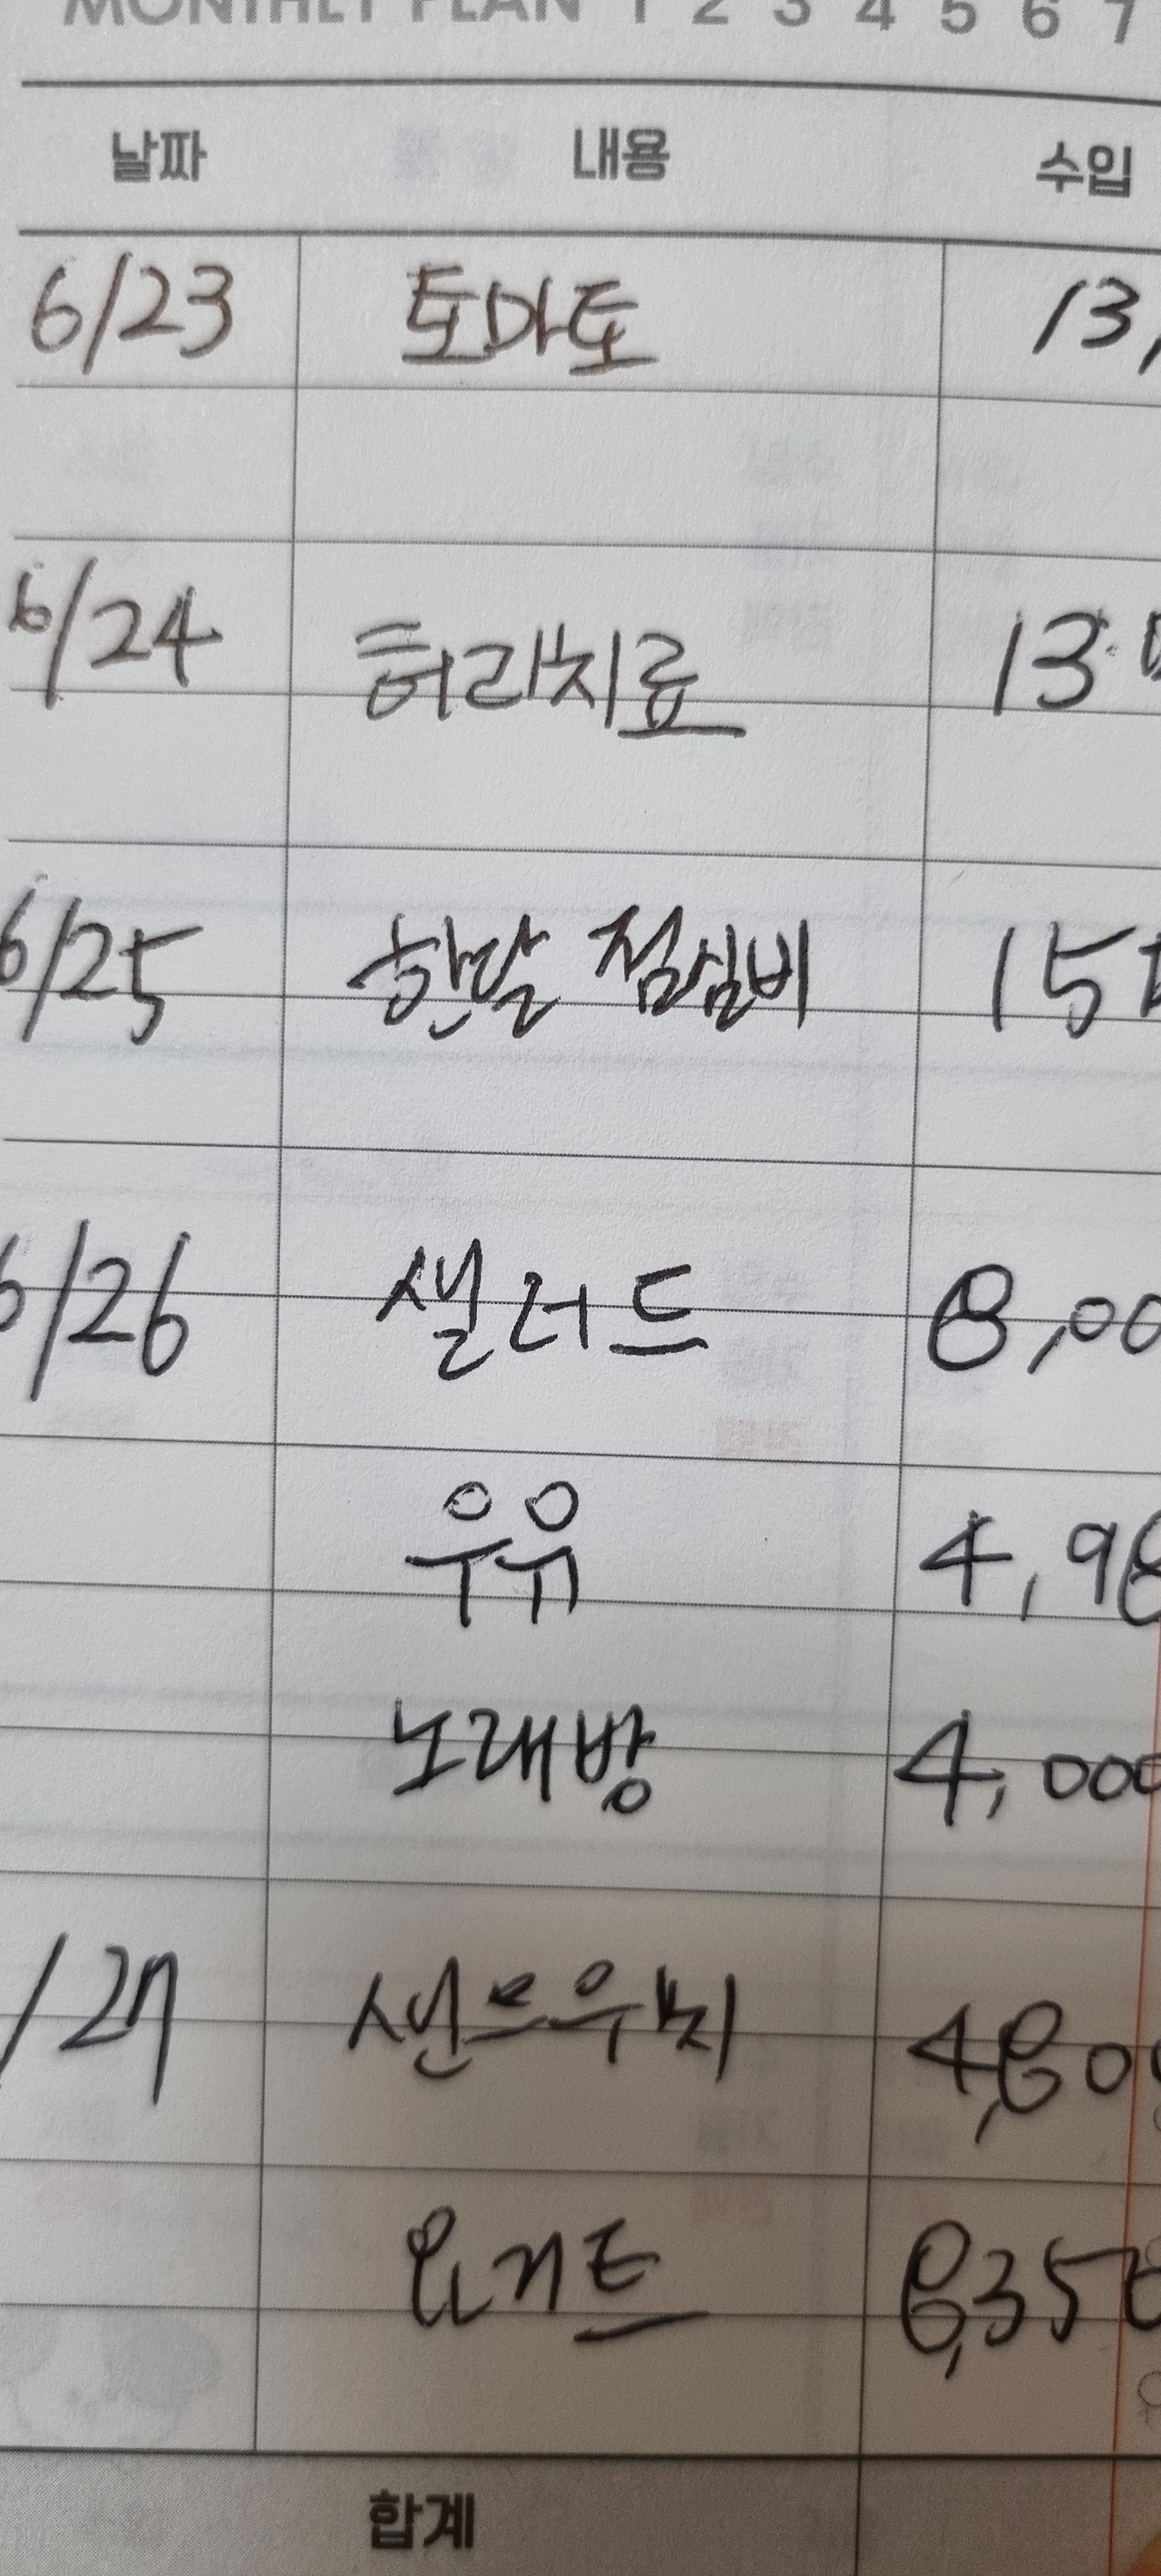 MONTHLY PLAN 1 2 3 4 5 6 7
날짜 내용 수입
6/23 토마토 13,
6/24 허리치료 13만
6/25 한달 점심비 15만
6/26 샐러드 8,00
우유 4,98
노래방 4,000
/27 샌드위치 4,800
요거트 8,350
합계